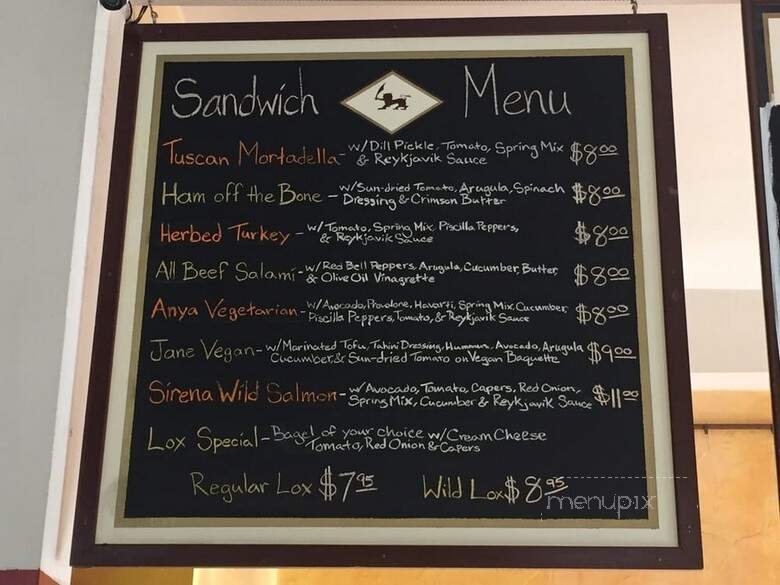 Sandwich Menu
Tuscan Mortadella - w/Dill Pickle, Tomato, Spring Mix $8.00
& Reykjavik Sauce
Ham off the Bone - w/Sun-dried Tomato, Arugula, Spinach $8.00
Dressing & Crimson Butter
Herbed Turkey - w/Tomato, Spring Mix, Piscilla Peppers, $8.00
& Reykjavik Sauce
All Beef Salami - w/Red Bell Peppers, Arugula, Cucumber, Butter, $8.00
& Olive Oil Vinagrette
Anya Vegetarian - w/Avocado, Provolone, Havarti, Spring Mix, Cucumber, $8.00
Piscilla Peppers, Tomato, & Reykjavik Sauce
Jane Vegan - w/Marinated Tofu, Tahini Dressing, Hummus, Avocado, Arugula $9.00
Cucumber, & Sun-dried Tomato on Vegan Baquette
Sirena Wild Salmon - w/Avocado, Tomato, Capers, Red Onion, $11.00
Spring Mix, Cucumber & Reykjavik Sauce
Lox Special - Bagel of your choice w/Cream Cheese
Tomato, Red Onion & Capers
Regular Lox $7.95 Wild Lox $8.95
menupix